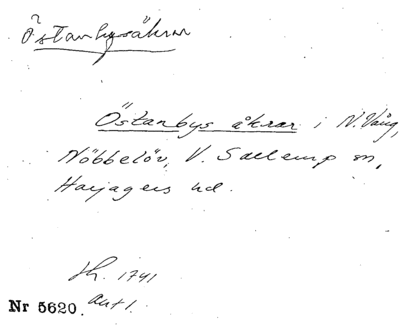 Östanbysåkrar
Östanbys åkrar i N. Vång,
Nöbbelöv, V. Sallerup sn,
Harjagers hd.
1741
Nr 5620. akt 1.